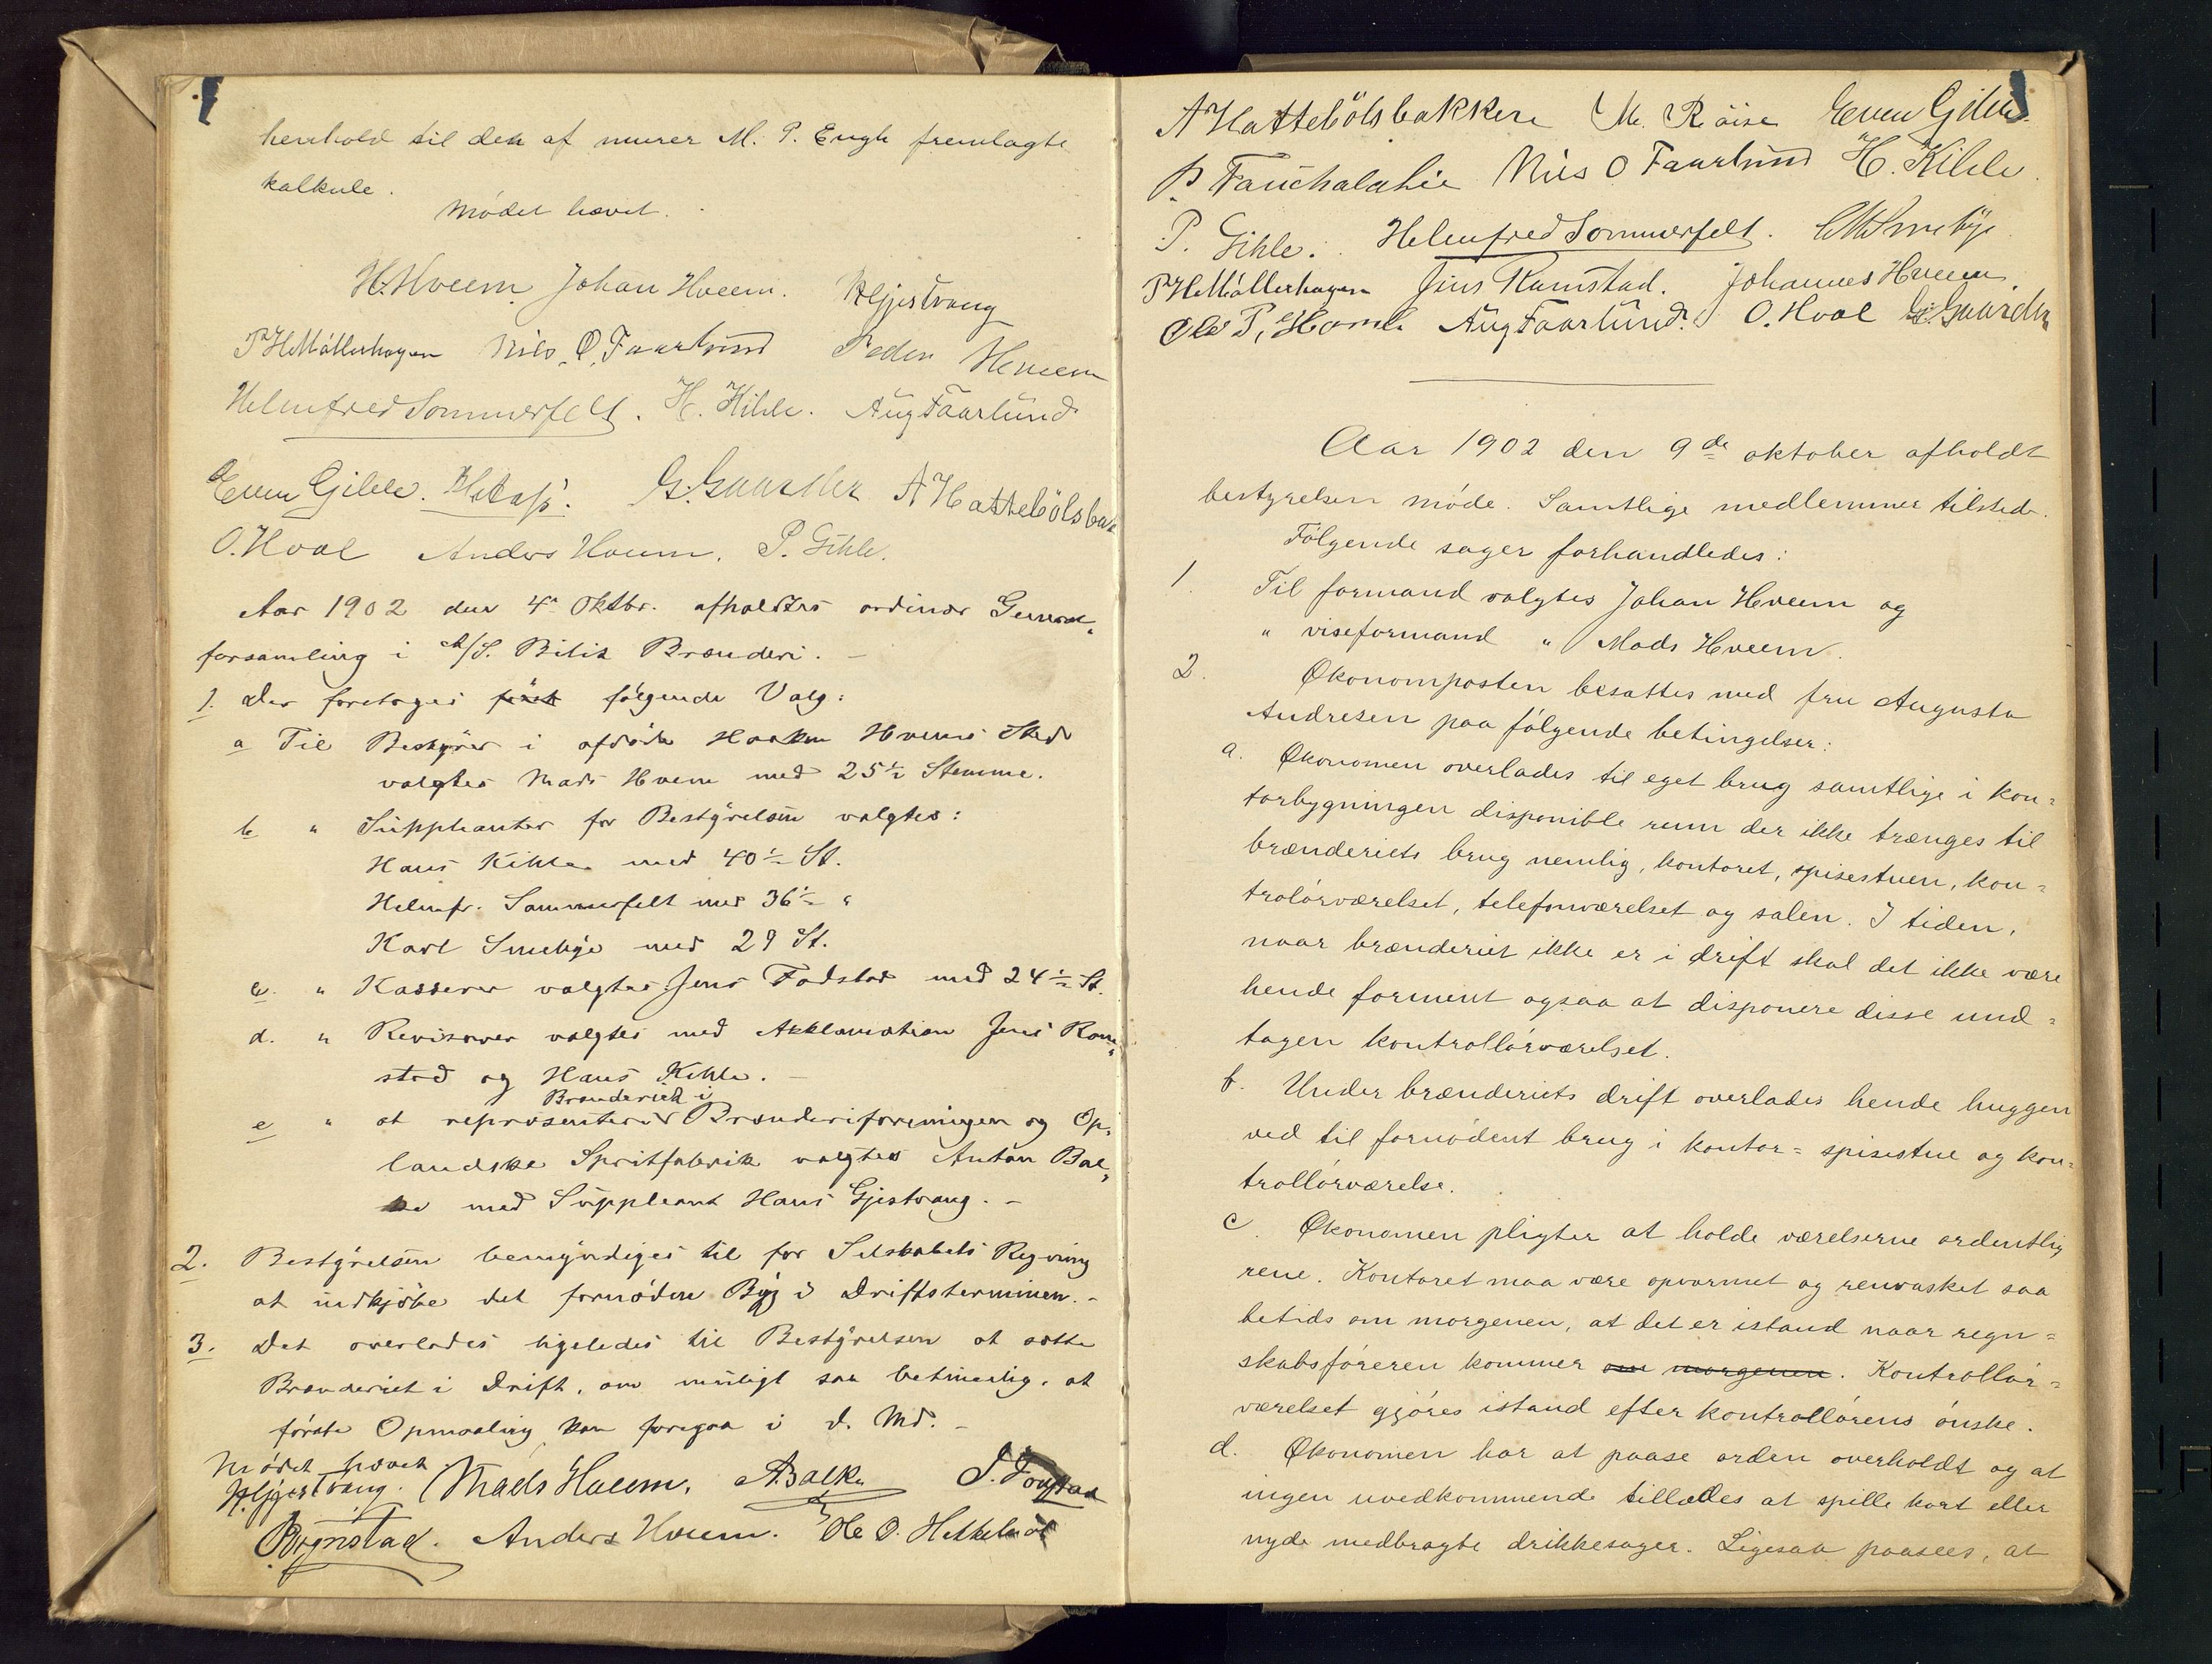 henhold til den af murer M. P. Engh fremlagte
kalkule.
Mödet hævet.
H. Hveem. Johan Hveem. H Gjestvang
P H Möllerhagen Nils O. Faarlund Peder Hveem
Helmfred Sommerfelt. H. Kihle. Aug Faarlund
Even Gihle. G. Gaarder A Hattebölsbak
O. Hoel Anders Hveem. P. Gihle.
Aar 1902 den 4de Oktbr. afholdtes ordinær General„
forsamling i A/S. Bilit Brænderi. –
1. Der foretoges först fölgende Valg:
a Til Bestyrer i afdöde Haakon Hveems Sted
valgtes Mads Hveem med 25 1/2 Stemme.
b " Suppleanter for Bestyrelsen valgtes:
Hans Kihle med 40 1/2 St.
Helmfr. Sommerfelt med 36 1/2 "
Karl Smebye med 29 St.
c. " Kasserer valgtes Jens Fodstad med 24 1/2 St.
d. " Revisorer valgtes med Akklamation Jens Ram„
stad og Hans Kihle. –
Brænderiet i
e " at repræsentere Brænderiforeningen og Op„
landske Spritfabrik valgtes Anton Bal„
ke med Suppleant Hans Gjestvang. –
2. Bestyrelsen bemyndiges til for Selskabets Regning
at indkjöbe det fornödne Byg i Driftsterminen. –
3. Det overlades ligeledes til Bestyrelsen at sætte
Brænderiet i Drift, om muligt saa betimelig, at
förste Opmaaling kan foregaa i d. Md. –
Mödet hævet
H Gjestvang. Mads Hveem. A Balke J. Fodstad
Anders Hveem. Ole O.
A Hattebölsbakken M. Röise Even Gihle.
P. Fauchaldlie Nils O Faarlund H. Kihle.
P. Gihle. Helmfred Sommerfelt. C M Smebye
P H Möllerhagen Jens Ramstad. Johannes Hveem.
Ole P. Aug Faarlund. O. Hoel G. Gaarder
Aar 1902 den 9de oktober afholdt
bestyrelsen möde. Samtlige medlemmer tilstede.
Fölgende sager forhandledes:
1. Til formand valgtes Johan Hveem og
" viseformand " Mads Hveem.
2. Økonomposten besattes med fru Augusta
Andresen paa fölgende betingelser:
a. Økonomen overlades til eget brug samtlige i kon=
torbygningen disponible rum der ikke trænges til
brænderiets brug nemlig, kontoret, spisestuen, kon=
trolörværelset, telefonværelset og salen. I tiden,
naar brænderiet ikke er i drift skal det ikke være
hende forment ogsaa at disponere disse und=
tagen kontrollörværelset.
b. Under brænderiets drift overlades hende huggen
ved til fornödent brug i kontor= spisestue og kon=
trollörværelse.
c. Økonomen pligter at holde værelserne ordentlig
rene. Kontoret maa være opvarmet og renvasket saa
betids om morgenen, at det er istand naar regn=
skabsföreren kommer om morgenen. Kontrollör=
værelset gjöres istand efter kontrollörens önske.
d. Økonomen har at paase orden overholdt og at
ingen uvedkommende tillades at spille kort eller
nyde medbragte drikkesager. Ligesaa paasees, at